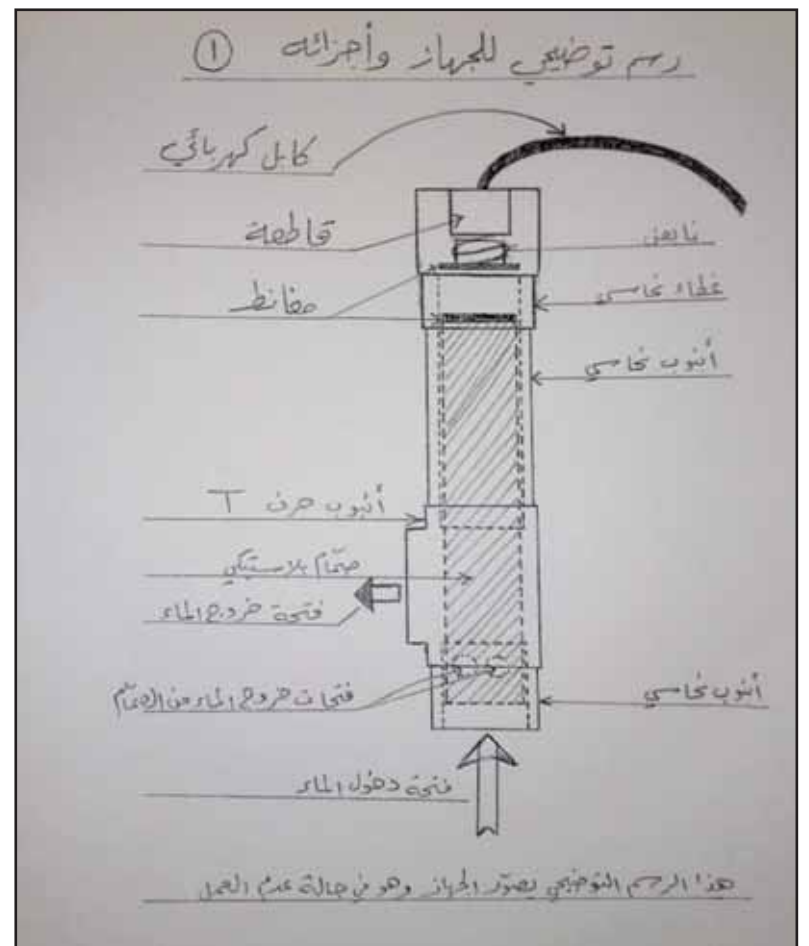 رسم توضيحي للجهاز وأجزائه ①
كابل كهربائي
قاطعة
نابض
مغانط
غطاء نحاسي
أنبوب نحاسي
أنبوب حرف T
صمّام بلاستيكي
فتحة خروج الماء
فتحات خروج الماء من الصمّام
أنبوب نحاسي
فتحة دخول الماء
هذا الرسم التوضيحي يصوّر الجهاز وهو في حالة عدم العمل